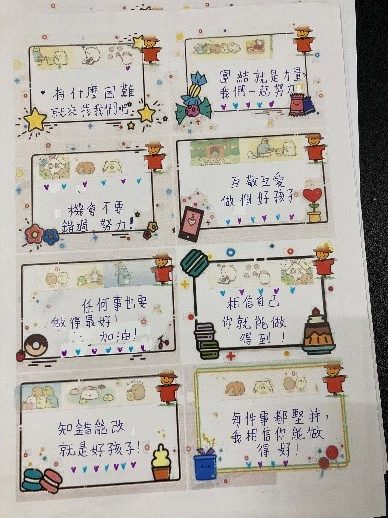 有什麼困難
就來找我們吧
團結就是力量
我們一起努力
機會不要
錯過 努力!
互敬互愛
做個好孩子
任何事也要
做得最好!
加油!
相信自己
你就能做
得到!
知錯能改
就是好孩子!
每件事都堅持,
我相信你能做
得好!